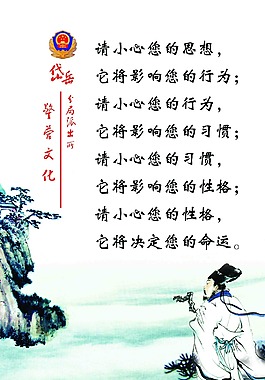 请小心您的思想，
它将影响您的行为；
请小心您的行为，
它将影响您的习惯；
请小心您的习惯，
它将影响您的性格；
请小心您的性格，
它将决定您的命运。
岱岳
分局派出所
警营文化